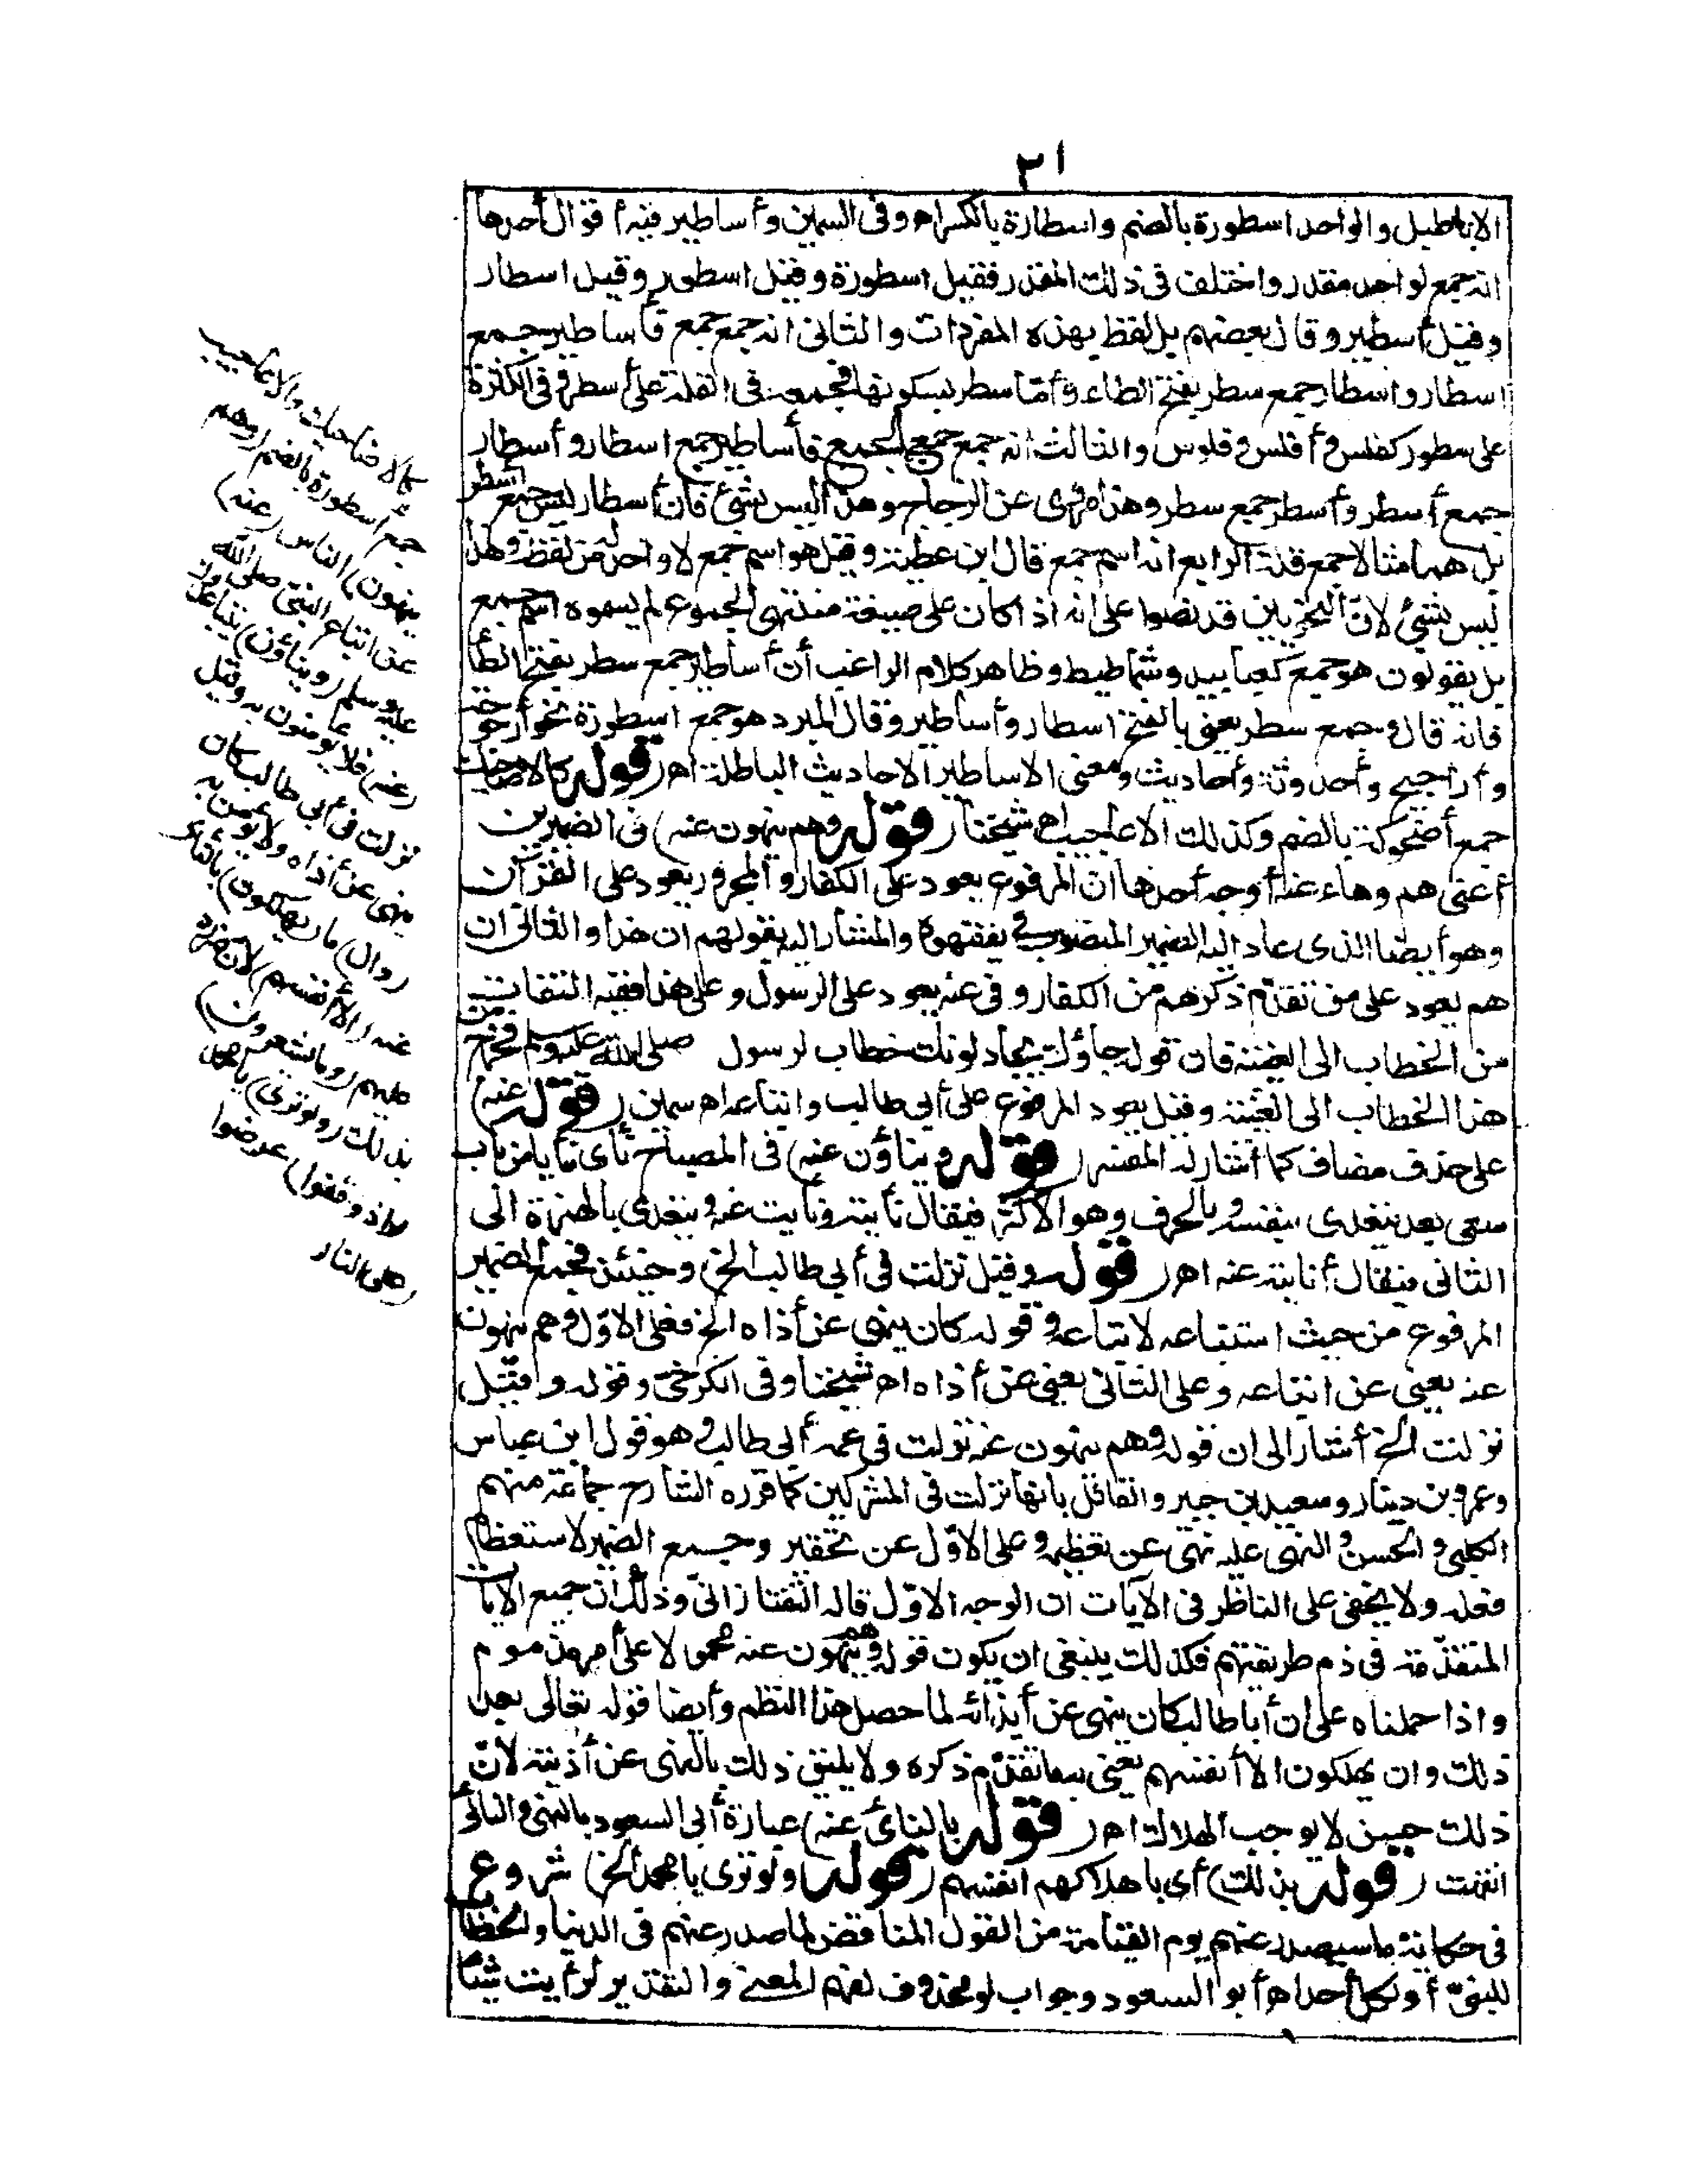 ٢١
الاباطيل والواحد اسطورة بالضم واسطارة بالكسر اه وفى السمين وأساطير فيه أقوال أحدها
انه جمع لواحد مقدر واختلف فى ذلك المقدر فقيل اسطورة وقيل اسطور وقيل اسطار
وقيل أسطير وقال بعضهم بل لفظ بهذه المفردات والثانى انه جمع جمع فأساطير جمع
اسطار واسطار جمع سطر بفتح الطاء وأما سطر بسكونها فجمعه فى القلة على أسطر وفى الكثرة
على سطور كفلس وأفلس وفلوس والثالث انه جمع جمع الجمع فأساطير جمع اسطار وأسطار
جمع أسطر وأسطر جمع سطر وهذا مروى عن الزجاج وهذا ليس بشئ فان أسطار ليس جمع أسطر
بل هما مثالا جمع قلة الرابع انه اسم جمع قال ابن عطية وقيل هو اسم جمع لا واحد له من لفظه وهذا
ليس بشئ لان النحويين قد نصوا على انه اذا كان على صيغة منتهى الجموع لم يسموه اسم جمع
بل يقولون هو جمع كعبابيد وشماطيط وظاهر كلام الراغب أن أساطير جمع سطر بفتح الطاء
فانه قال وجمع سطر يعنى بالفتح اسطار وأساطير وقال المبرد هو جمع اسطورة نحو أرجوحة
وأراجيح وأحدوثة وأحاديث ومعنى الاساطير الاحاديث الباطلة اه (قوله كالاضاحيك)
جمع أضحوكة بالضم وكذلك الاعاجيب اه شيخنا (قوله وهم ينهون عنه) فى الضميرين
أعنى هم وهاء عنه أوجه أحدها ان المرفوع يعود على الكفار والمجرور يعود على القرآن
وهو أيضا الذى عاد اليه الضمير المنصوب فى يفقهوه والمشار اليه بقولهم ان هذا والثانى ان
هم يعود على من تقدم ذكرهم من الكفار وفى عنه يعود على الرسول وعلى هذا ففيه التفات
من الخطاب الى الغيبة فان قوله جاؤك يجادلونك خطاب لرسول صلى الله عليه وسلم فخرج من
هذا الخطاب الى الغيبة وقيل يعود المرفوع على أبى طالب واتباعه اه سمين (قوله عنه)
على حذف مضاف كما أشار له المفسر (قوله وينأون عنه) فى المصباح نأى نأيا من باب
سعى بعد يتعدى بنفسه وبالحرف وهو الاكثر فيقال نأيته ونأيت عنه ويتعدى بالهمزة الى
الثانى فيقال أنأيته عنه اه (قوله وقيل نزلت فى أبى طالب الخ) وحينئذ فجمع الضمير
المرفوع من حيث استتباعه لاتباعه وقوله كان ينهى عن أذاه الخ فعلى الاول وهم ينهون
عنه يعنى عن اتباعه وعلى الثانى يعنى عن أذاه اه شيخنا وفى الكرخى وقوله وقيل
نزلت الخ أشار الى ان قوله وهم ينهون عنه نزلت فى عمه أبى طالب وهو قول ابن عباس
وعمرو بن دينار وسعيد بن جبير والقائل بانها نزلت فى المشركين كما قرره الشارح جماعة منهم
الكلبى والحسن والنهى عليه نهى عن تعظيمه وعلى الاول عن تحقير وجمع الضمير لاستعظام
فعله ولا يخفى على الناظر فى الآيات ان الوجه الاول قاله التفتازانى وذلك ان جميع الآيات
المتقدمة فى ذم طريقتهم فكذلك ينبغى ان يكون قوله وهم ينهون عنه محمولا على أمر مذموم
واذا حملناه على ان أبا طالب كان ينهى عن أيذائه لما حصل هذا النظم وأيضا قوله تعالى بعد
ذلك وان يهلكون الا أنفسهم يعنى بما تقدم ذكره ولا يليق ذلك بالنهى عن أذيته لان
ذلك حسن لا يوجب الهلاك اه (قوله بالنأى عنه) عبارة أبى السعود بالنهى والنأى
انتهت (قوله بذلك) أى باهلاكهم انفسهم (قوله ولو ترى يا محمد الخ) شروع
فى حكاية ما سيصدر عنهم يوم القيامة من القول المناقض لما صدر عنهم فى الدنيا والخطاب
للنبى أو لكل أحد اه أبو السعود وجواب لو محذوف لفهم المعنى والتقدير لرأيت شيئا
كالاضاحيك والاعاجيب
جمع أسطورة بالضم (وهم
ينهون) الناس (عنه)
عن اتباع النبى صلى الله
عليه وسلم (وينأون) يتباعدون
(عنه) فلا يؤمنون به وقيل
نزلت فى أبى طالب كان
ينهى عن أذاه ولا يؤمن به
(وان) ما (يهلكون) بالنأى
عنه (الا أنفسهم) لان ضرره
عليهم (وما يشعرون)
بذلك (ولو ترى) يا محمد
(اذ وقفوا) عرضوا
(على النار